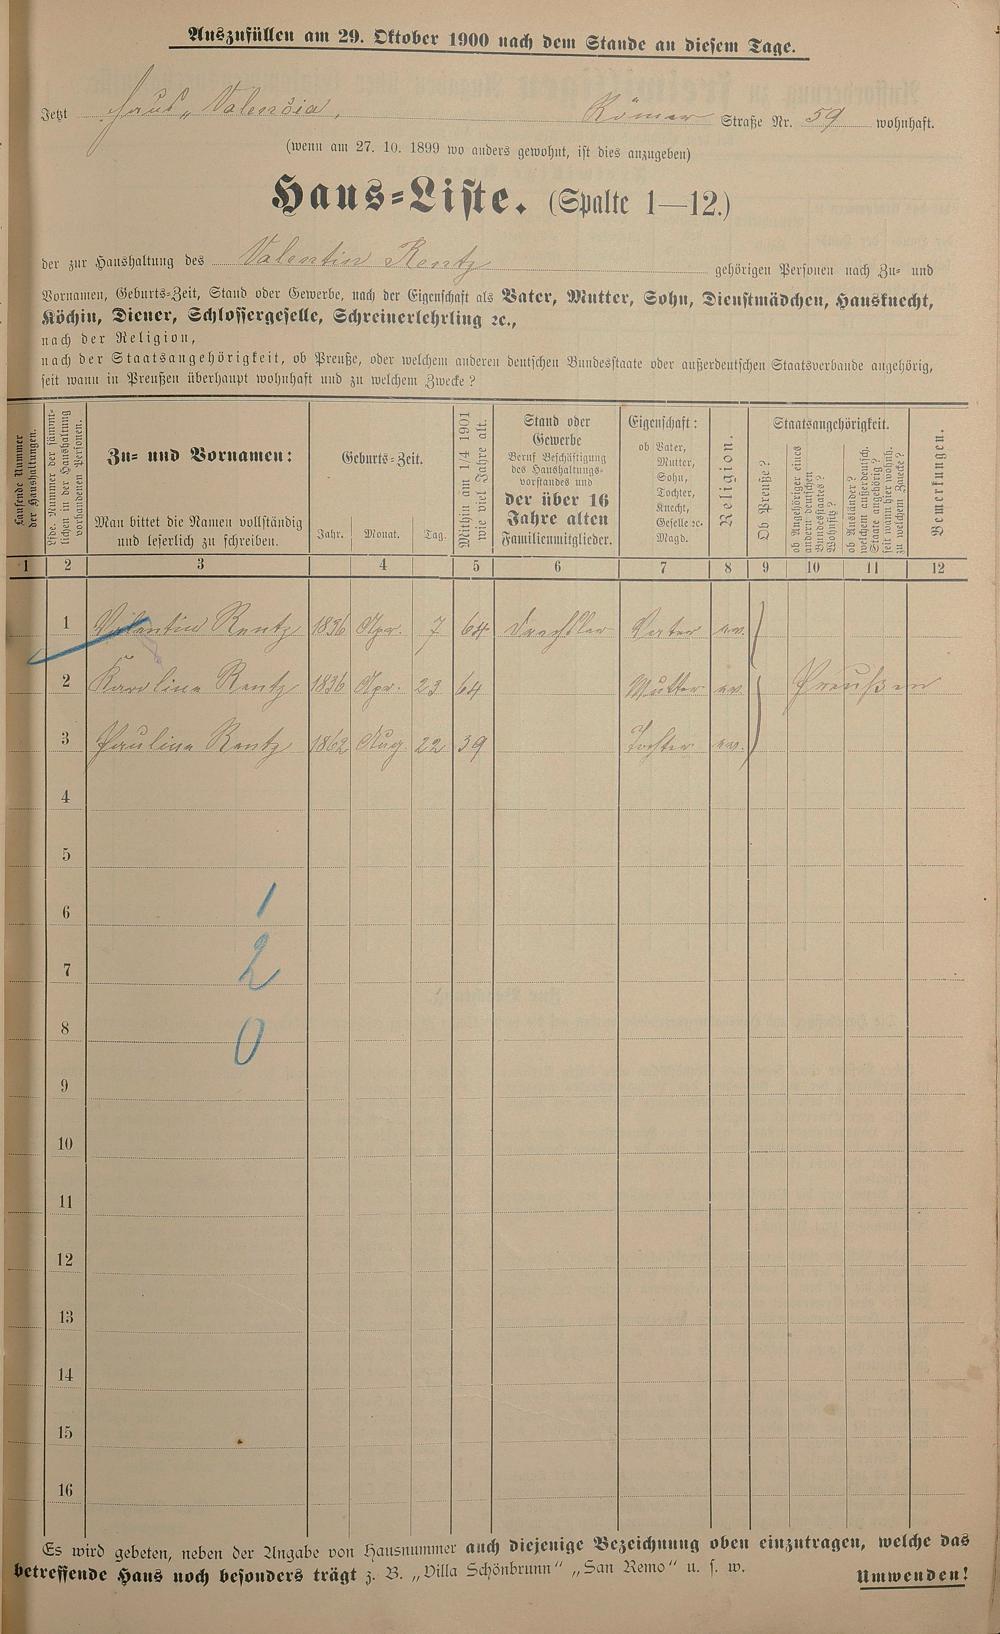 Auszufüllen am 29. Oktober 1900 nach dem Stande an diesem Tage.
Jetzt Haus „Valencia, Römer Straße Nr. 59 wohnhaft.
(wenn am 27. 10. 1899 wo anders gewohnt, ist dies anzugeben)
Haus-Liste. (Spalte 1—12.)
der zur Haushaltung des Valentin Rentz gehörigen Personen nach Zu- und
Vornamen, Geburts-Zeit, Stand oder Gewerbe, nach der Eigenschaft als Vater, Mutter, Sohn, Dienstmädchen, Hausknecht,
Köchin, Diener, Schlossergeselle, Schreinerlehrling ꝛc.,
nach der Religion,
nach der Staatsangehörigkeit, ob Preuße, oder welchem anderen deutschen Bundesstaate oder außerdeutschen Staatsverbande angehörig,
seit wann in Preußen überhaupt wohnhaft und zu welchem Zwecke?
Laufende Nummer
der Haushaltungen.
Lfde. Nummer der sämmt-
lichen in der Haushaltung
vorhandenen Personen.
Zu- und Vornamen:
Man bittet die Namen vollständig
und leserlich zu schreiben.
Geburts-Zeit.
Jahr. Monat. Tag.
Mithin am 1/4 1901
wie viel Jahre alt.
Stand oder
Gewerbe
Beruf Beschäftigung
des Haushaltungs-
vorstandes und
der über 16
Jahre alten
Familienmitglieder.
Eigenschaft:
ob Vater,
Mutter,
Sohn,
Tochter,
Knecht,
Geselle ꝛc.
Magd.
Religion.
Staatsangehörigkeit.
Ob Preuße?
ob Angehöriger eines
andern deutschen
Bundesstaates?
Wohnsitz?
ob Ausländer?
welchem außerdeutsch.
Staate angehörig?
seit wann hier wohnh.
zu welchem Zwecke?
Bemerkungen.
1 2 3 4 5 6 7 8 9 10 11 12
1 Valentin Rentz 1836 Apr. 7 64 Drechsler Vater ev.
2 Karoline Rentz 1836 Apr. 23 64 Mutter ev. Preußen
3 Pauline Rentz 1862 Aug 22 39 Tochter ev.
4
5
6 1
7 2
8 0
9
10
11
12
13
14
15
16
Es wird gebeten, neben der Angabe von Hausnummer auch diejenige Bezeichnung oben einzutragen, welche das
betreffende Haus noch besonders trägt z. B. „Villa Schönbrunn“ „San Remo“ u. s. w.
Umwenden!